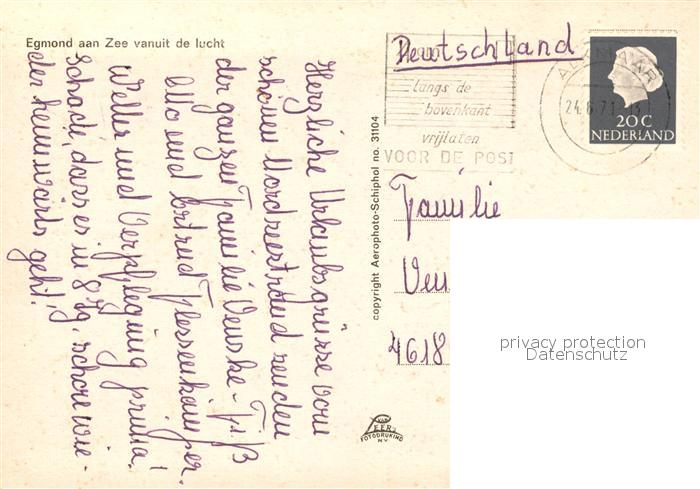 Egmond aan Zee vanuit de lucht
Herzliche Urlaubsgrüsse vom
schönen Nordseestrand senden
der ganzen Familie Venske - Fr. B
Otto und Ertrud Flessenkämper.
Wetter und Verpflegung prima!
Schade, dass es in 8 Tg. schon wie-
der heimwärts geht!
copyright Aerophoto-Schiphol no. 31104
Deutschland
langs de
bovenkant
vrijlaten
VOOR DE POST
ALKMAAR
24.6.71
20C
NEDERLAND
Familie
Ven
4618
VAN
LEER's
FOTODRUKIND
N.V.
privacy protection
Datenschutz